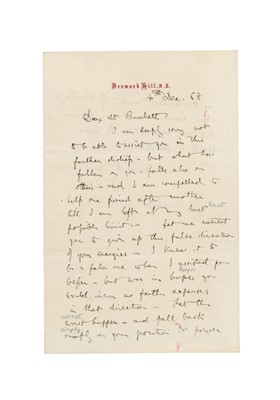 Denmark Hill, S.E.
4th Dec. 68
Dear Mr Burchett
I am deeply sorry not
to be able to assist you in this
further distress - but what has
fallen on you - falls also on
others - and I am compelled to
help one friend after another
till I am left at my last
possible limit - Let me entreat
you to give up this false direction
of your energies - I knew it to
be a false one when I assisted you
before - but was in hopes you
would incur no farther expenses
in that direction - Let the
worst happen - and fall back
simply on your position &amp; power